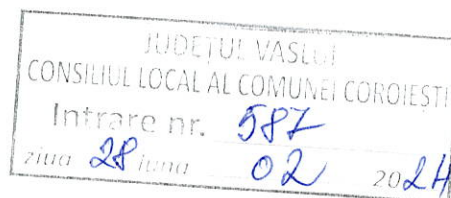 JUDEȚUL VASLUI
CONSILIUL LOCAL AL COMUNEI COROIEȘTI
Intrare nr. 587
ziua 28 luna 02 2024